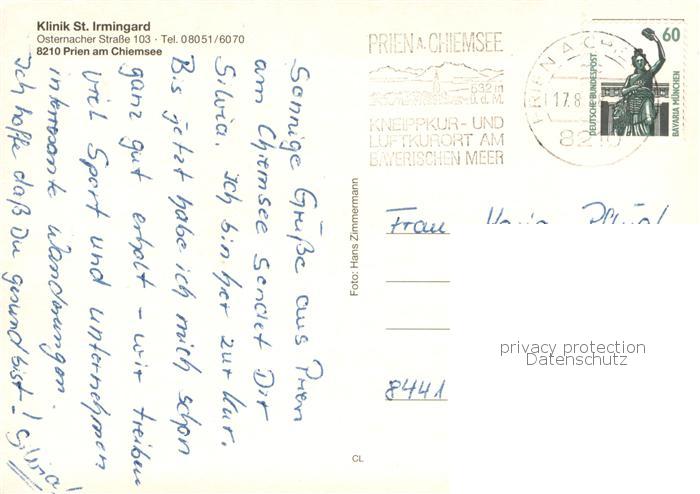 Klinik St. Irmingard
Osternacher Straße 103 · Tel. 08051/6070
8210 Prien am Chiemsee
Sonnige Grüße aus Prien
am Chiemsee sendet Dir
Silvia. Ich bin hier zur Kur.
Bis jetzt habe ich mich schon
ganz gut erholt - wir treiben
viel Sport und unternehmen
interessante Wanderungen.
Ich hoffe daß Du gesund bist!
Silvia!
Foto: Hans Zimmermann
CL
PRIEN A. CHIEMSEE
532 m
ü. d. M.
KNEIPPKUR- UND
LUFTKURORT AM
BAYERISCHEN MEER
PRIEN A CHIE
17.8
8210
60
DEUTSCHE BUNDESPOST
BAVARIA MÜNCHEN
Frau
8441
privacy protection
Datenschutz